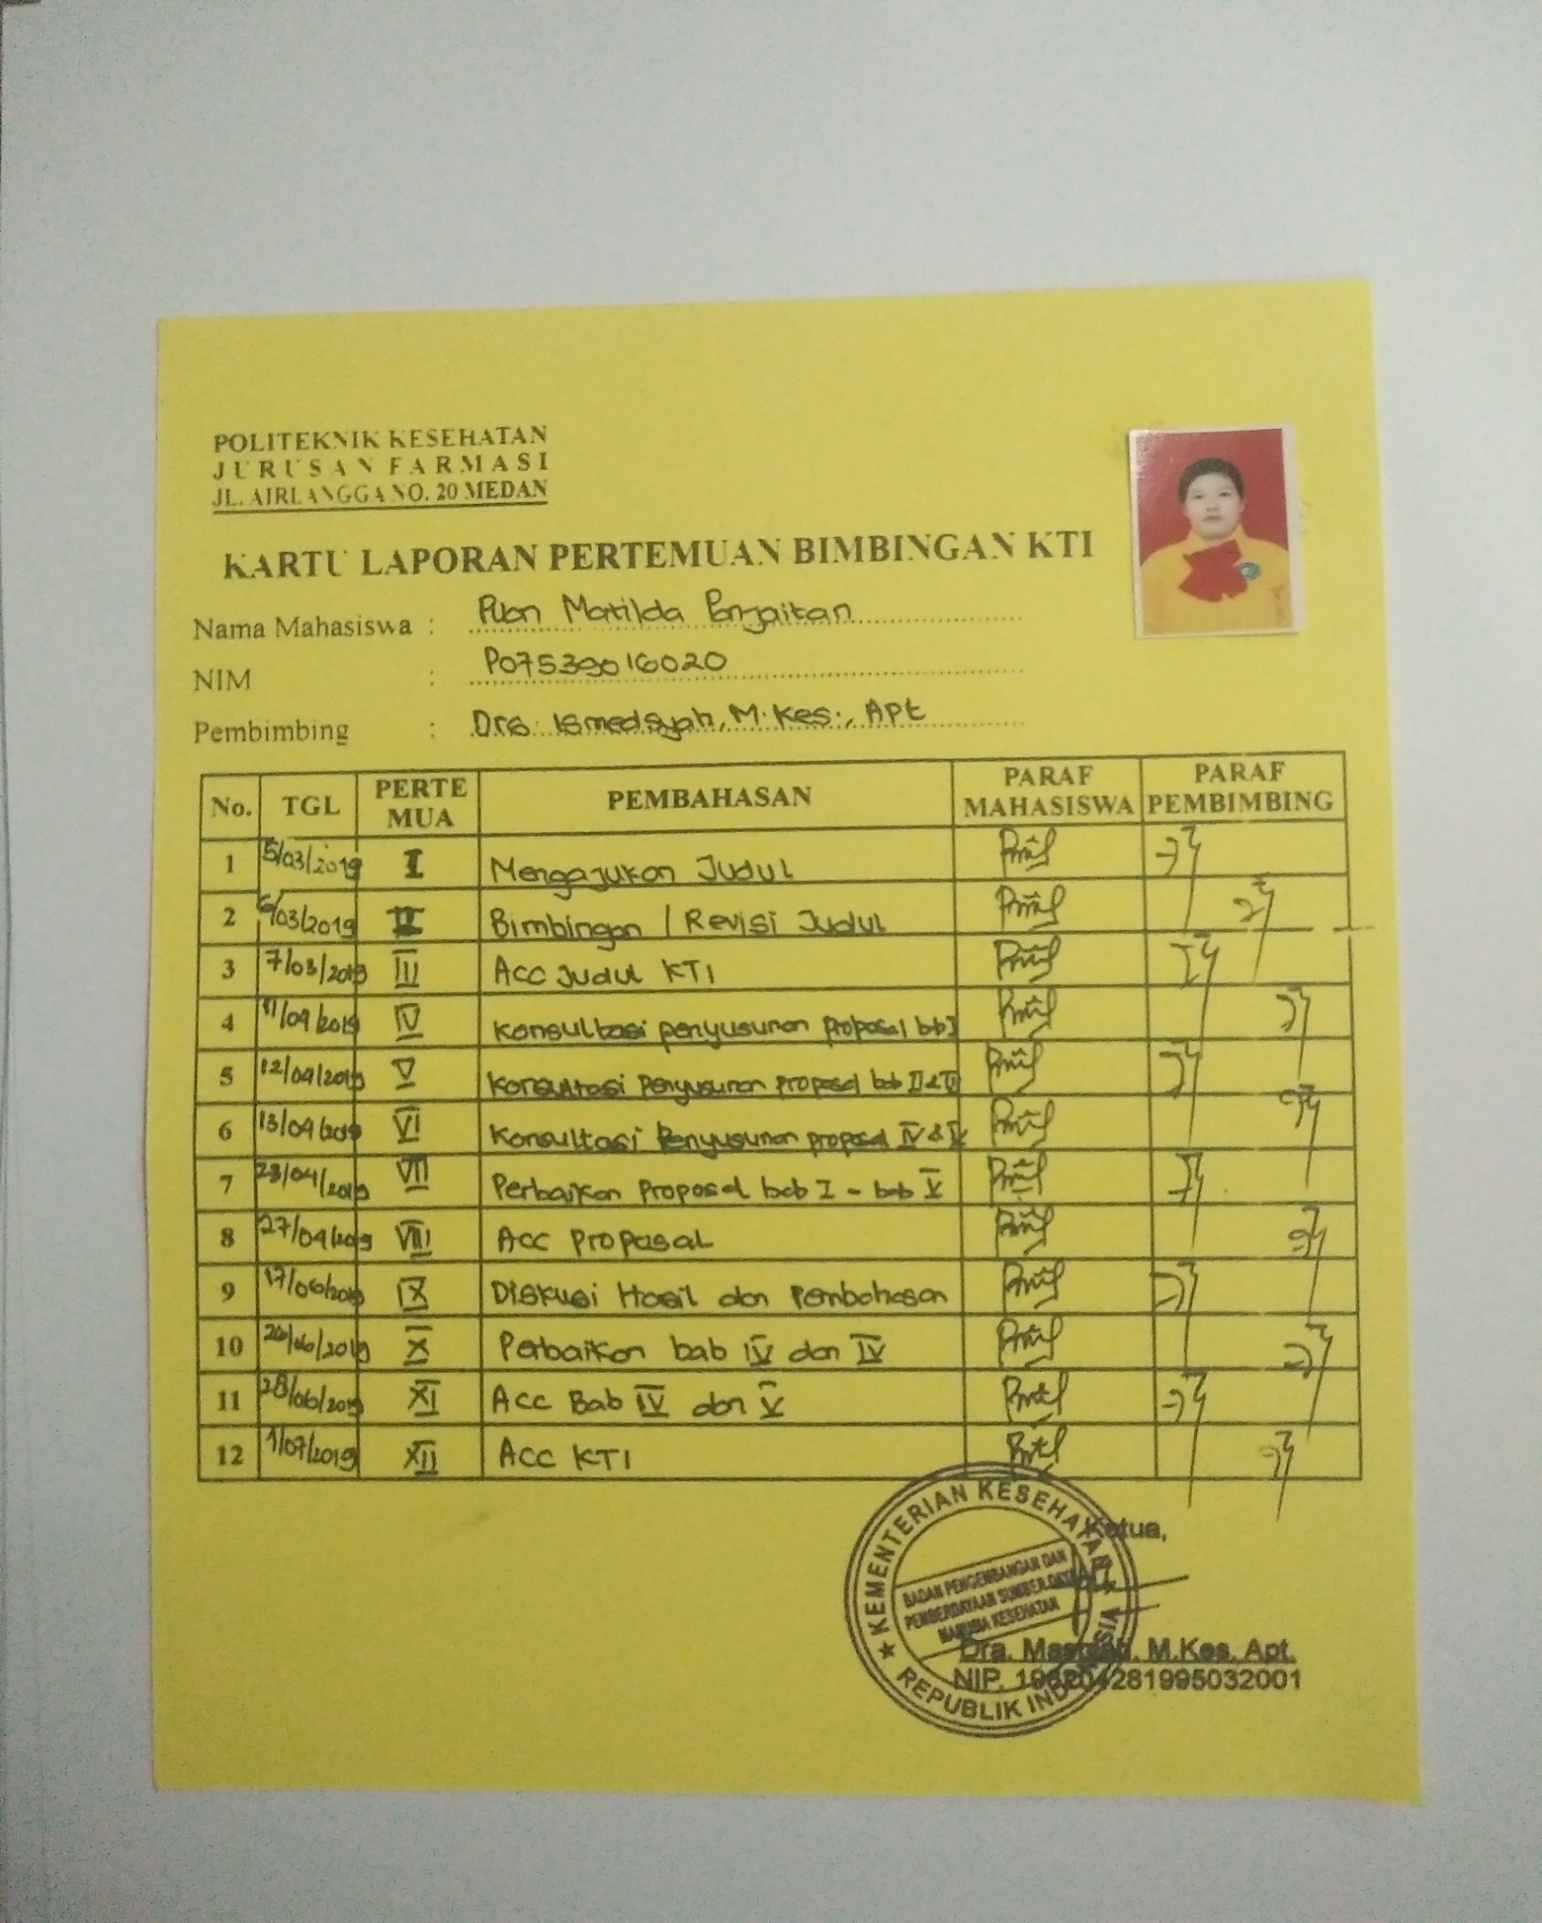 POLITEKNIK KESEHATAN
JURUSAN FARMASI
JL. AIRLANGGA NO. 20 MEDAN
KARTU LAPORAN PERTEMUAN BIMBINGAN KTI
Nama Mahasiswa : Matilda Panjaitan
NIM : P07539016020
Pembimbing : Drs. Ismedsyah, M.Kes., Apt
No. TGL PERTE MUA PEMBAHASAN PARAF MAHASISWA PARAF PEMBIMBING
1 5/03/2019 I Mengajukan Judul
2 6/03/2019 II Bimbingan / Revisi Judul
3 7/03/2019 III Acc Judul KTI
4 11/04/2019 IV Konsultasi penyusunan proposal bab I
5 12/04/2019 V Konsultasi penyusunan proposal bab II &
6 13/04/2019 VI Konsultasi penyusunan proposal IV & V
7 23/04/2019 VII Perbaikan proposal bab I - bab V
8 27/04/2019 VIII Acc Proposal
9 17/06/2019 IX Diskusi Hasil dan Pembahasan
10 26/06/2019 X Perbaikan bab IV dan IV
11 28/06/2019 XI Acc Bab IV dan V
12 1/07/2019 XII Acc KTI
Ketua,
KEMENTERIAN KESEHATAN
BADAN PENGEMBANGAN DAN
PEMBERDAYAAN SUMBER DAYA
MANUSIA KESEHATAN
REPUBLIK INDONESIA
Dra. Masniah, M.Kes, Apt.
NIP. 196204281995032001